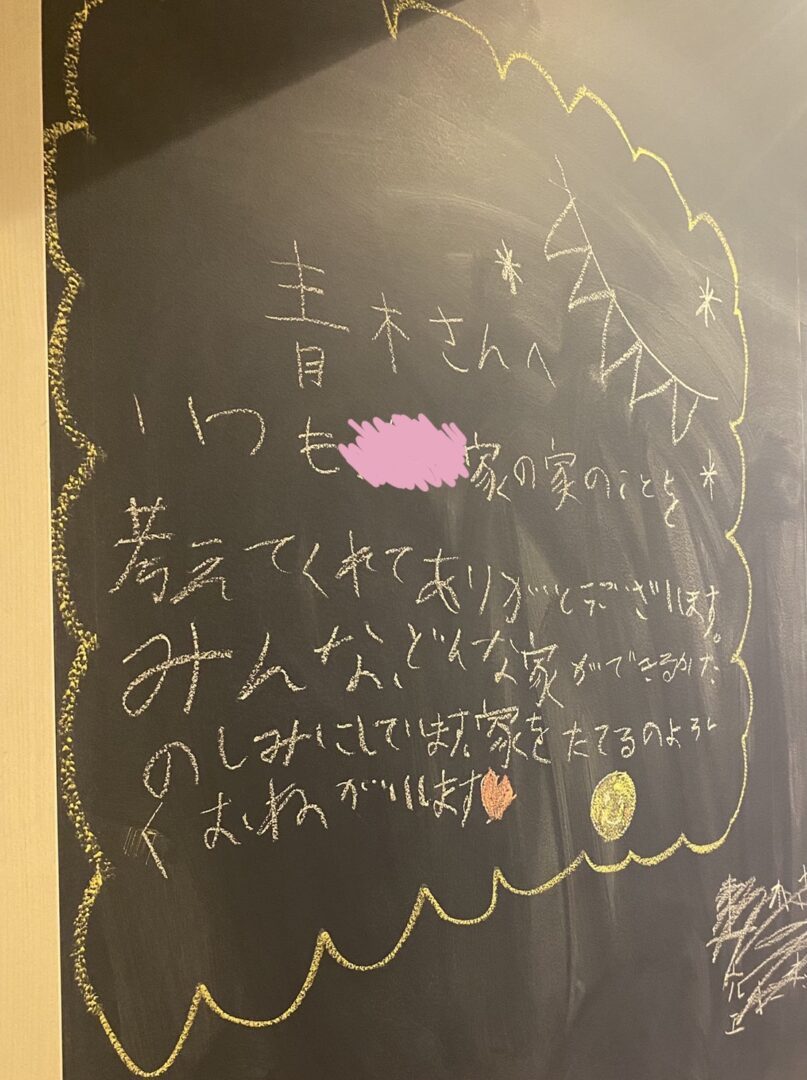 青木さんへ
いつも家の家のことを
考えてくれてありがとうございます。
みんな、どんな家ができるかた
のしみにしています。家をたてるのよろし
くおねがいします